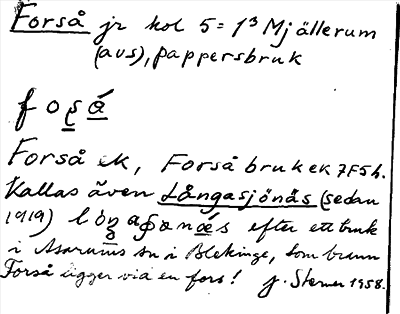 Forså jr kol 5 = 1³ Mjällerum
(avs), pappersbruk
foʂá
Forså ek, Forså bruk ek 7F5h.
Kallas även Långasjönäs (sedan
1919) efter ett bruk
i Asarums sn i Blekinge, som brunn
Forså ligger vid en fors! J. Sterner 1958.